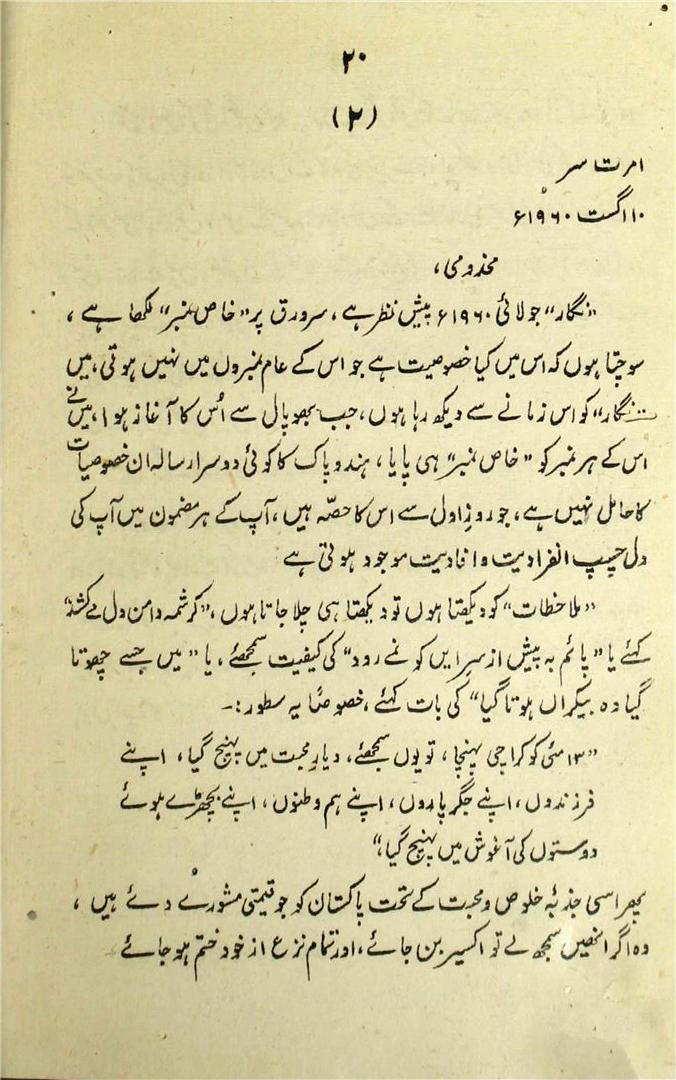 ۲۰
(۲)
امرت سر
۱۰ اگست ۱۹۶۰ء
مخدومی،
"نگار" جولائی ۱۹۶۰ء پیش نظر ہے، سرورق پر "خاص نمبر" لکھا ہے،
سوچتا ہوں کہ اس میں کیا خصوصیت ہے جو اس کے عام نمبروں میں نہیں ہوتی، میں
"نگار" کو اس زمانے سے دیکھ رہا ہوں، جب بھوپال سے اُس کا آغاز ہوا، میں نے
اس کے ہر نمبر کو "خاص نمبر" ہی پایا، ہندو پاک کا کوئی دوسرا رسالہ ان خصوصیات
کا حامل نہیں ہے، جو روزِ اول سے اس کا حصّہ ہیں، آپ کے ہر مضمون میں آپ کی
دل چسپ انفرادیت و افادیت موجود ہوتی ہے
"ملاحظات" کو دیکھتا ہوں تو دیکھتا ہی چلا جاتا ہوں، "کرشمہ دامن دل مے کشد"
کہئے یا "پائم بہ پیش از سرایں کو نمے رود" کی کیفیت سمجھئے، یا "میں جسے چھوتا
گیا وہ بیکراں ہوتا گیا" کی بات کہئے، خصوصاً یہ سطور:۔
"۱۳ مئی کو کراچی پہنچا، تو یوں سمجھئے، دیارِ محبت میں پہنچ گیا، اپنے
فرزندوں، اپنے جگر پاروں، اپنے ہم وطنوں، اپنے بچھڑے ہوئے
دوستوں کی آغوش میں پہنچ گیا،"
پھر اسی جذبۂ خلوص و محبت کے تحت پاکستان کو جو قیمتی مشورے دئے ہیں،
وہ اگر انھیں سمجھ لے تو اکسیر بن جائے، اور تمام نزع از خود ختم ہو جائے